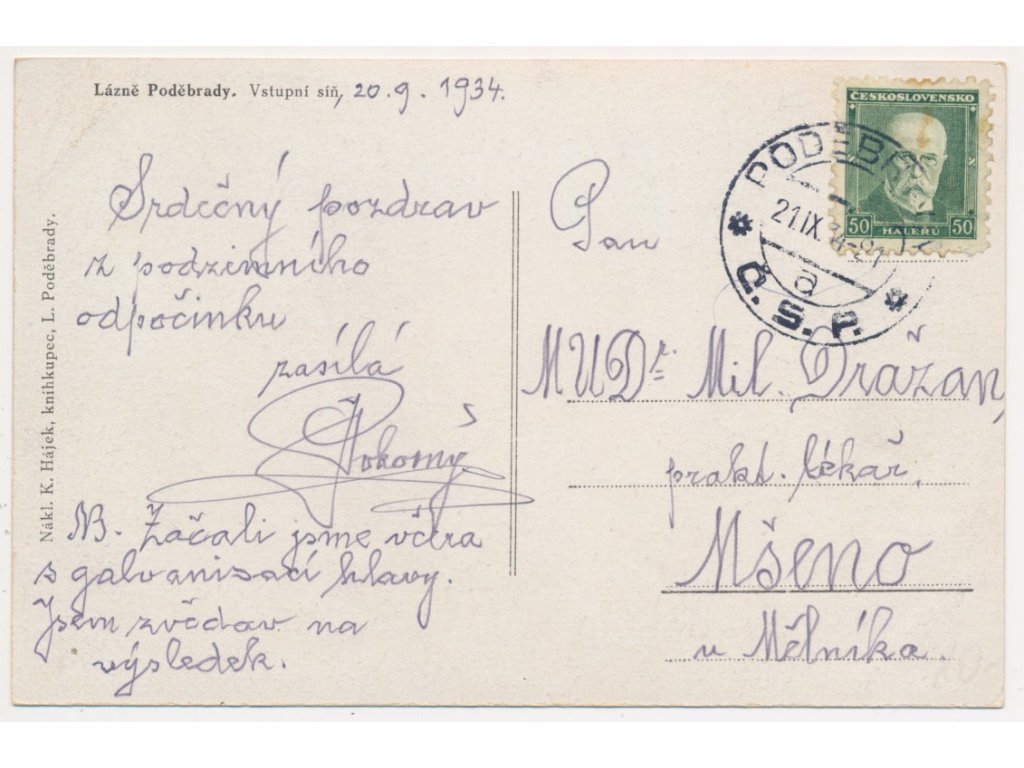 Lázně Poděbrady. Vstupní síň, 20.9.1934.
Srdečný pozdrav
z podzimního
odpočinku
zasílá
Pokorný
NB. Začali jsme včera
s galvanisací hlavy.
Jsem zvědav na
výsledek.
Nákl. K. Hájek, knihkupec, L. Poděbrady.
ČESKOSLOVENSKO
50 HALÉŘŮ 50
21.IX.34-21
a
Č.S.P.
Pan
MUDr. Mil. Dražan,
prakt. lékař,
Mšeno
u Mělníka.